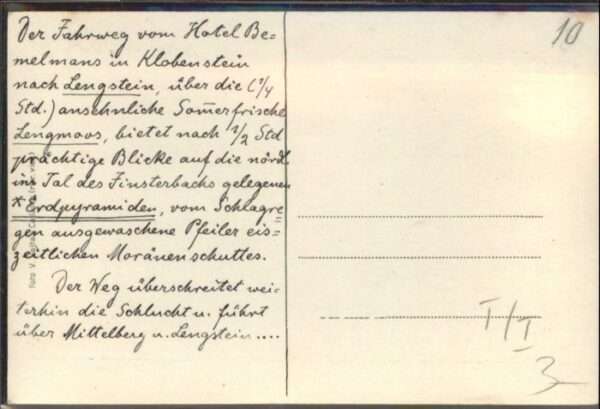 Der Fahrweg vom Hotel Be=
melmans in Klobenstein
nach Lengstein, über die (1/4
Std.) ansehnliche Som̅erfrische
Lengmoos, bietet nach 1/2 Std
prächtige Blicke auf die nördl.
im Tal des Finsterbachs gelegenen
*Erdpyramiden, vom Schlagre=
gen ausgewaschene Pfeiler eis=
zeitlichen Moränenschuttes.
Der Weg überschreitet wei-
terhin die Schlucht u. führt
über Mittelberg u. Lengstein....
Foto V.
10
I/I
3